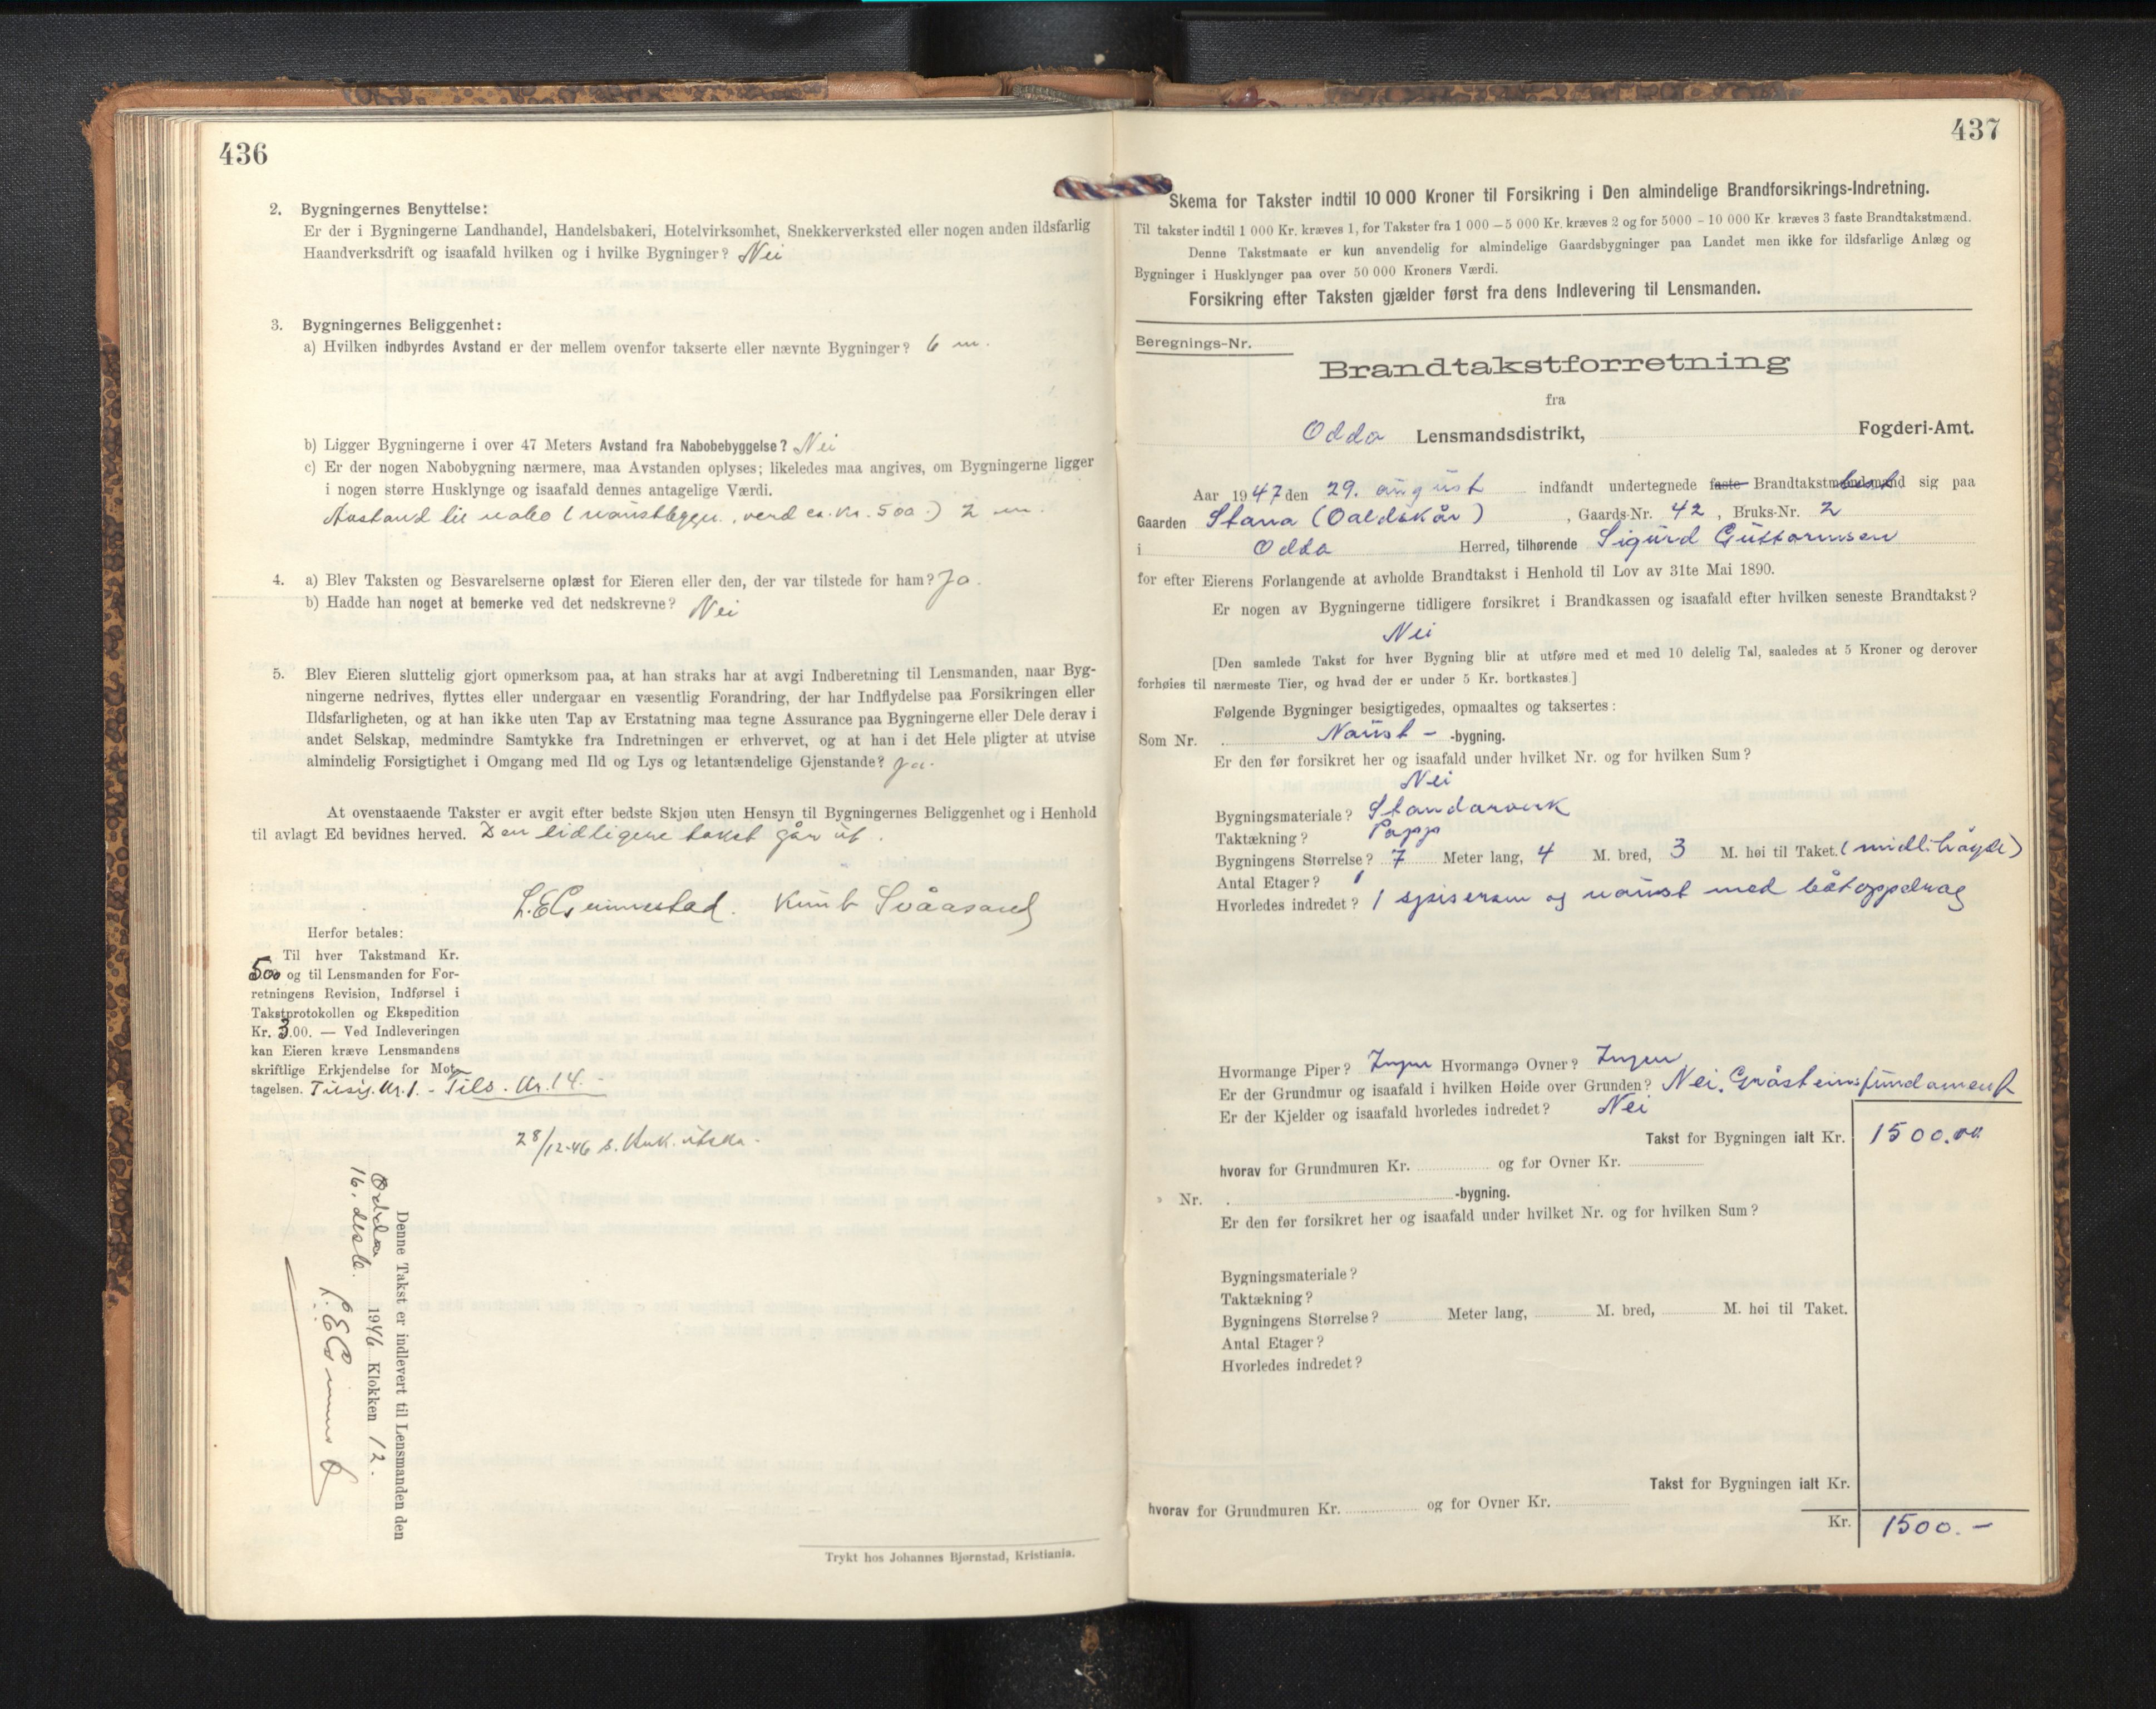 436
2. Bygningernes Benyttelse:
Er der i Bygningerne Landhandel, Handelsbakeri, Hotelvirksomhet, Snekkerverksted eller nogen anden ildsfarlig
Haandverksdrift og isaafald hvilken og i hvilke Bygninger? Nei
3. Bygningernes Beliggenhet:
a) Hvilken indbyrdes Avstand er der mellem ovenfor takserte eller nævnte Bygninger? 6 m.
b) Ligger Bygningerne i over 47 Meters Avstand fra Nabobebyggelse? Nei
c) Er der nogen Nabobygning nærmere, maa Avstanden oplyses; likeledes maa angives, om Bygningerne ligger
i nogen større Husklynge og isaafald dennes antagelige Værdi.
Avstand til nabo (naustbyggn., verd ca. kr. 500.) 2 m.
4. a) Blev Taksten og Besvarelserne oplæst for Eieren eller den, der var tilstede for ham? Ja.
b) Hadde han noget at bemerke ved det nedskrevne? Nei
5. Blev Eieren sluttelig gjort opmerksom paa, at han straks har at avgi Indberetning til Lensmanden, naar Byg-
ningerne nedrives, flyttes eller undergaar en væsentlig Forandring, der har Indflydelse paa Forsikringen eller
Ildsfarligheten, og at han ikke uten Tap av Erstatning maa tegne Assurance paa Bygningerne eller Dele derav i
andet Selskap, medmindre Samtykke fra Indretningen er erhvervet, og at han i det Hele pligter at utvise
almindelig Forsigtighet i Omgang med Ild og Lys og letantændelige Gjenstande? Ja.
At ovenstaaende Takster er avgit efter bedste Skjøn uten Hensyn til Bygningernes Beliggenhet og i Henhold
til avlagt Ed bevidnes herved. Den tidligere takst går ut.
Knut Svåasand
Herfor betales:
Til hver Takstmand Kr.
5.00 og til Lensmanden for For-
retningens Revision, Indførsel i
Takstprotokollen og Ekspedition
Kr. 3.00. — Ved Indleveringen
kan Eieren kræve Lensmandens
skriftlige Erkjendelse for Mot-
tagelsen. Kr. 1. - Tils. Kr. 14.-
28/12-46 s.
Denne Takst er indlevert til Lensmanden den
Odda 1946 Klokken 12.
16. desbr.
Trykt hos Johannes Bjørnstad, Kristiania.
437
Skema for Takster indtil 10 000 Kroner til Forsikring i Den almindelige Brandforsikrings-Indretning.
Til takster indtil 1 000 Kr. kræves 1, for Takster fra 1 000 – 5 000 Kr. kræves 2 og for 5000 – 10 000 Kr. kræves 3 faste Brandtakstmænd.
Denne Takstmaate er kun anvendelig for almindelige Gaardsbygninger paa Landet men ikke for ildsfarlige Anlæg og
Bygninger i Husklynger paa over 50 000 Kroners Værdi.
Forsikring efter Taksten gjælder først fra dens Indlevering til Lensmanden.
Beregnings-Nr.
Brandtakstforretning
fra
Odda Lensmandsdistrikt, Fogderi-Amt.
Aar 1947 den 29. august indfandt undertegnede faste Brandtakstmænd sig paa
Gaarden Stana (Oaldskår), Gaards-Nr. 42, Bruks-Nr. 2
i Odda Herred, tilhørende Sigurd Guttormsen
for efter Eierens Forlangende at avholde Brandtakst i Henhold til Lov av 31te Mai 1890.
Er nogen av Bygningerne tidligere forsikret i Brandkassen og isaafald efter hvilken seneste Brandtakst?
Nei
[Den samlede Takst for hver Bygning blir at utføre med et med 10 delelig Tal, saaledes at 5 Kroner og derover
forhøies til nærmeste Tier, og hvad der er under 5 Kr. bortkastes.]
Følgende Bygninger besigtigedes, opmaaltes og taksertes:
Som Nr. Naust- -bygning.
Er den før forsikret her og isaafald under hvilket Nr. og for hvilken Sum?
Nei
Bygningsmateriale? Standarverk
Taktækning? Papp
Bygningens Størrelse? 7 Meter lang, 4 M. bred, 3 M. høi til Taket. (midl. høyde)
Antal Etager? 1
Hvorledes indredet? 1 spiserom og naust med båtoppdrag
Hvormange Piper? Ingen Hvormange Ovner? Ingen
Er der Grundmur og isaafald i hvilken Høide over Grunden? Nei. Gråsteinsfundament
Er der Kjelder og isaafald hvorledes indredet? Nei
Takst for Bygningen ialt Kr. 1500.00
hvorav for Grundmuren Kr. og for Ovner Kr.
» Nr. -bygning.
Er den før forsikret her og isaafald under hvilket Nr. og for hvilken Sum?
Bygningsmateriale?
Taktækning?
Bygningens Størrelse? Meter lang, M. bred, M. høi til Taket.
Antal Etager?
Hvorledes indredet?
Takst for Bygningen ialt Kr.
hvorav for Grundmuren Kr. og for Ovner Kr.
Kr. 1500.-